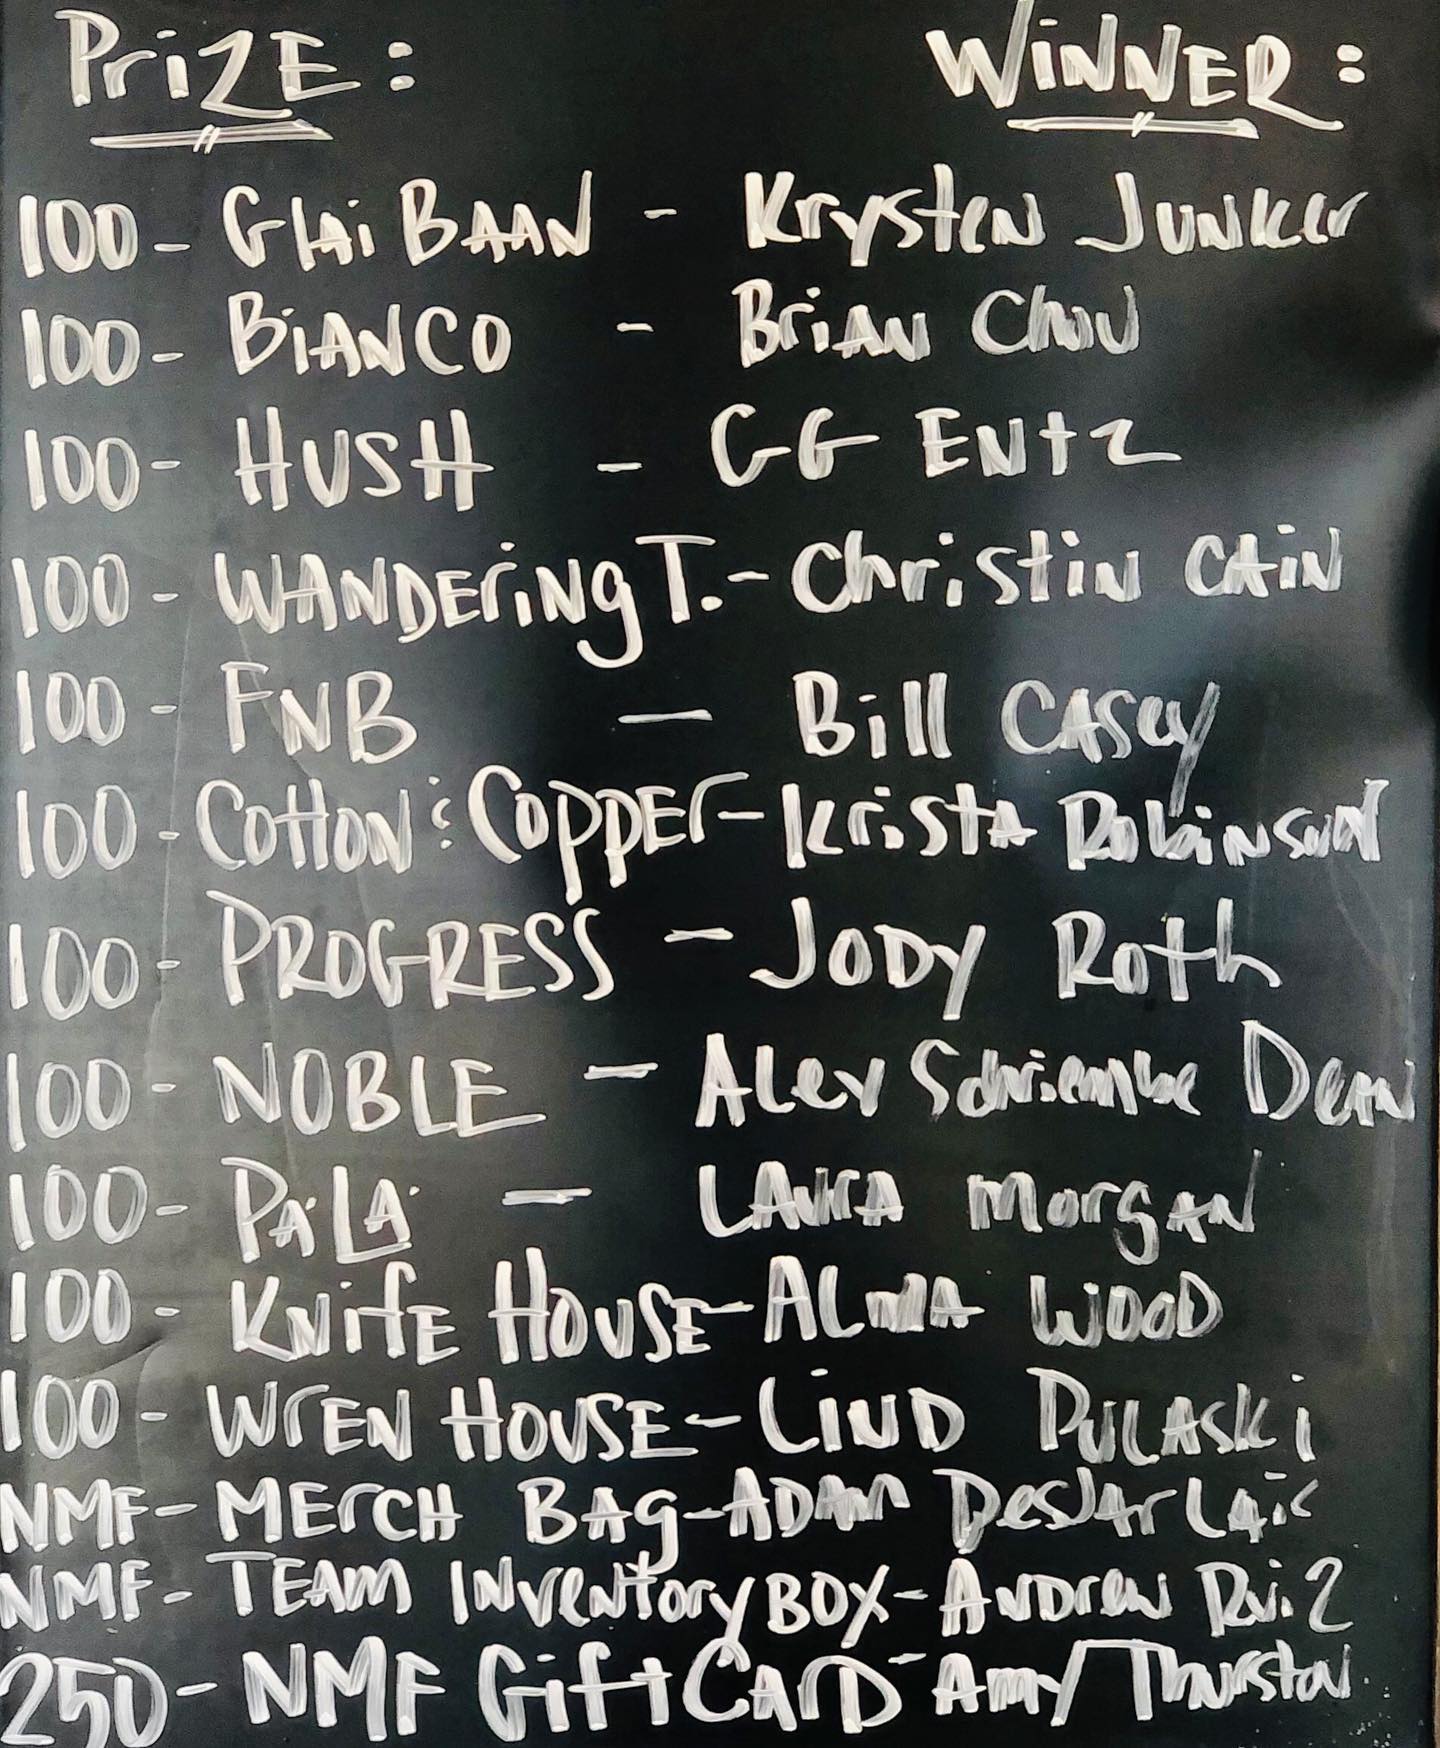 PriZE: WiNNER:
100 - GlAi BAAN - Krysten Junker
100 - BiANCO - BriAN Chow
100 - HUSH - GG ENtz
100 - WANDEriNg T. - Christin CAiN
100 - FNB - Bill CASey
100 - COttON & COPPEr - KristA RobiNsoN
100 - PROGRESS - JODY Roth
100 - NOBLE - Alex Dean
100 - PA'LA' - LAurA MorgAN
100 - KNifE HOUSE - ALMA WOOD
100 - WrEN HOUSE - LiND PULASKi
NMF - MErCH BAg - ADAM DesJArLAis
NMF - TEAM INveNtory BOX - ANDrew Ruiz
250 - NMF Gift CArD - Amy Thurston